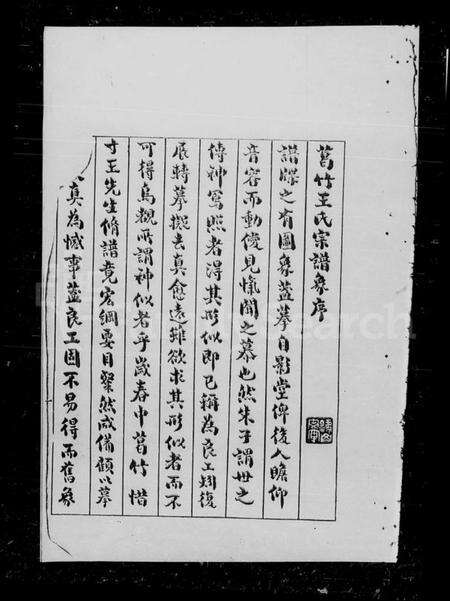 葛竹王氏宗譜象序
譜牒之有圖象蓋摹自影堂俾後人瞻仰
音容而動僾見愾聞之慕也然朱子謂世之
傳神寫照者得其形似即已稱為良工矧復
展轉摹擬去真愈遠雖欲求其形似者而不
可得烏覩所謂神似者乎歲春中葛竹惜
寸王先生脩譜竟宏綱要目粲然咸備顧以摹
真為憾事蓋良工固不易得而舊象